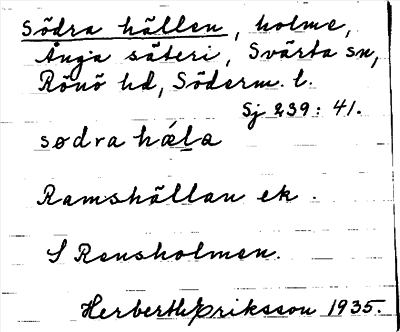 Södra hällen, holme,
Ånga säteri, Svärta sn,
Rönö hd, Söderm. l.
Sj 239:41.
södra hä́la
Ramshällan ek.
S Rensholmen.
Herberth Eriksson 1935.